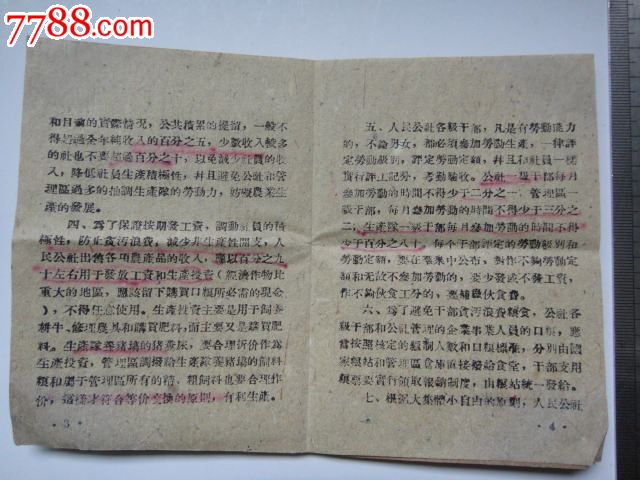 7788.com
和目前的實際情况，公共積累的提留，一般不
得超過全年純收入的百分之五，少數收入較多
的社也不要超過百分之十，以免减少社員的收
入，降低社員生產積極性，幷且避免公社和管
理區過多的抽調生產隊的勞動力，妨礙農業生
產的發展。
四、爲了保證按期發工資，調動社員的積
極性，防止貪污浪費，减少非生產性開支，人
民公社出售各項農產品的收入，應以百分之九
十左右用于發放工資和生產投資（經濟作物比
重大的地區，應該留下購買口糧所必需的現金
），不得任意使用。生產投資主要是用于飼養
耕牛、修理農具和購買肥料，而主要又是購買肥
料。生產隊養豬塲的猪糞尿，要合理折價作爲
生產投資，管理區調撥給生產隊養豬塲的飼料
糧和屬于管理區所有的精、粗飼料也要合理作
价，這樣才符合等价交換的原則，有利生產。
·3·
五、人民公社各級干部，凡是有勞動能力
的，不論男女，都必須參加勞動生產，一律評
定勞動底級，評定勞動定額，幷且和社員一樣
實行評工記分，考勤驗收。公社一級干部每月
參加勞動的時間不得少于二分之一；管理區一
級干部，每月參加勞動的時間不得少于三分之
二，生產隊一級干部每月參加勞動的時間不得
少于百分之八十，每个干部評定的勞動級別和
勞動定額，要在羣衆中公布，對作不夠勞動定
額和无故不參加勞動的，要少發或不發工資，
作不夠伙食工分的，應補繳伙食費。
六、爲了避免干部貪污糧食，公社各
級干部和公社管理的企業事業人員的口糧，應
當按照核定的編制人數和口糧標准，分別由國
家糧站和管理區倉庫直接撥給食堂，干部支用
糧票要實行領取報銷制度，由糧站統一發給。
七、根據大集體小自由的原則，人民公社
·4·